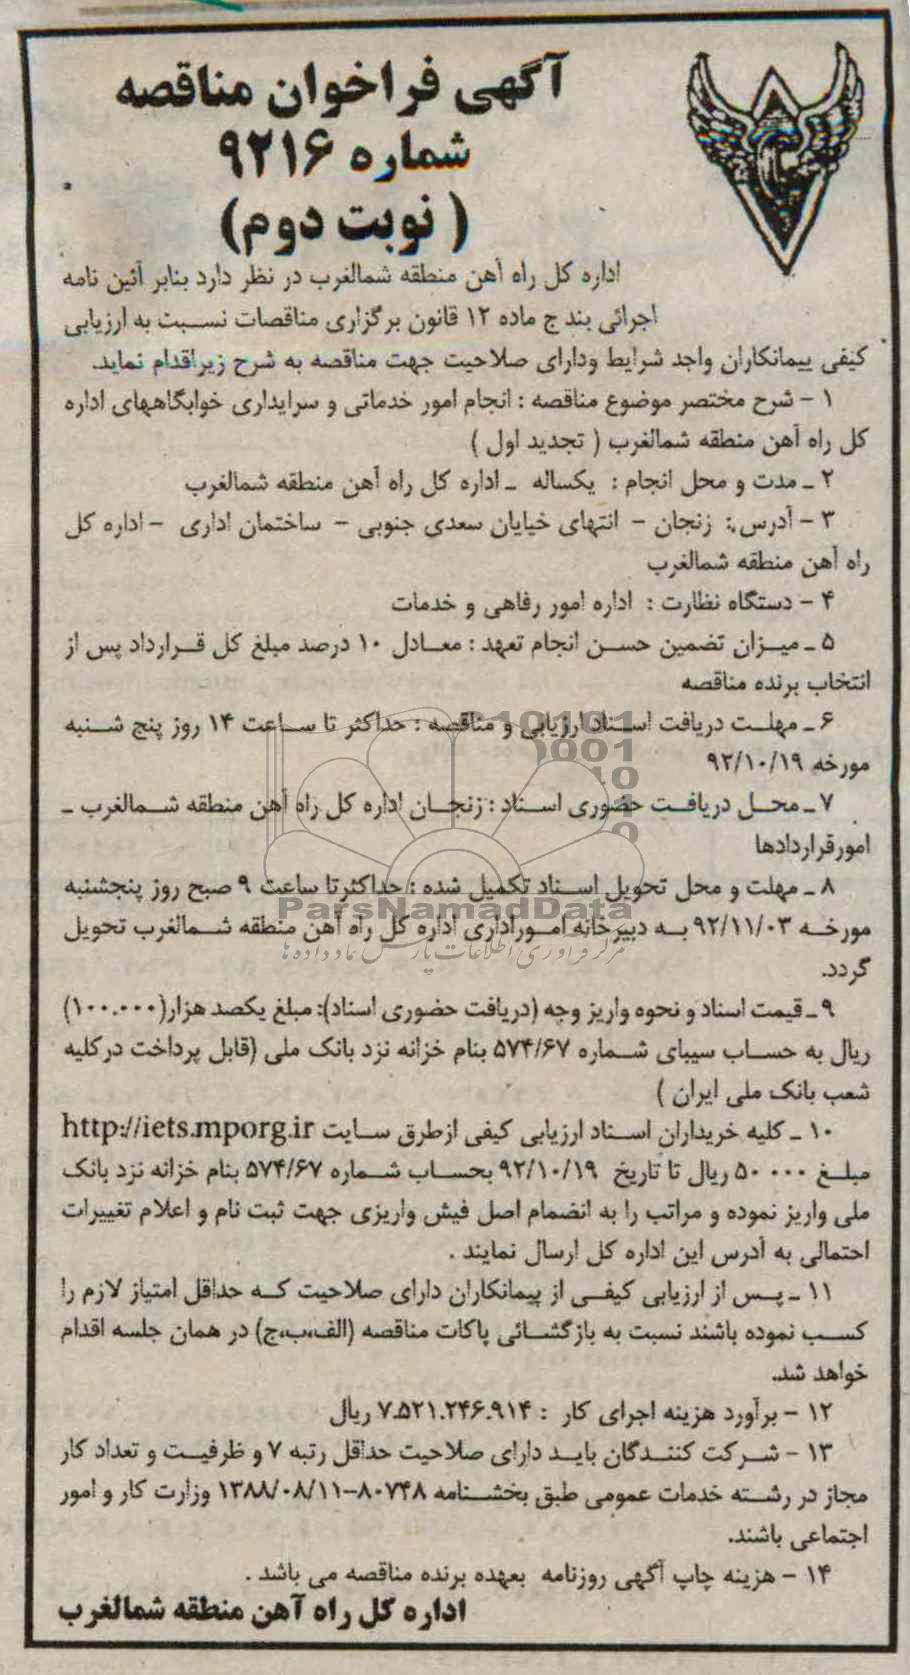 آگهی فراخوان مناقصه
شماره ۹۲۱۶
( نوبت دوم)
اداره کل راه آهن منطقه شمالغرب در نظر دارد بنابر آئین نامه
اجرائی بند ج ماده ۱۲ قانون برگزاری مناقصات نسبت به ارزیابی
کیفی پیمانکاران واجد شرایط ودارای صلاحیت جهت مناقصه به شرح زیراقدام نماید.
۱ - شرح مختصر موضوع مناقصه : انجام امور خدماتی و سرایداری خوابگاههای اداره
کل راه آهن منطقه شمالغرب ( تجدید اول )
۲ ـ مدت و محل انجام : یکساله ـ اداره کل راه آهن منطقه شمالغرب
۳ - آدرس : زنجان - انتهای خیابان سعدی جنوبی - ساختمان اداری - اداره کل
راه آهن منطقه شمالغرب
۴ - دستگاه نظارت : اداره امور رفاهی و خدمات
۵ ـ میزان تضمین حسن انجام تعهد : معادل ۱۰ درصد مبلغ کل قرارداد پس از
انتخاب برنده مناقصه
۶ ـ مهلت دریافت اسناد ارزیابی و مناقصه : حداکثر تا ساعت ۱۴ روز پنج شنبه
مورخه ۹۲/۱۰/۱۹
۷ ـ محل دریافت حضوری اسناد : زنجان اداره کل راه آهن منطقه شمالغرب ـ
امورقراردادها
۸ ـ مهلت و محل تحویل اسناد تکمیل شده : حداکثرتا ساعت ۹ صبح روز پنجشنبه
مورخه ۹۲/۱۱/۰۳ به دبیرخانه اموراداری اداره کل راه آهن منطقه شمالغرب تحویل
گردد.
۹ ـ قیمت اسناد و نحوه واریز وجه (دریافت حضوری اسناد): مبلغ یکصد هزار(۱۰۰.۰۰۰)
ریال به حساب سیبای شماره ۵۷۴/۶۷ بنام خزانه نزد بانک ملی (قابل پرداخت درکلیه
شعب بانک ملی ایران )
۱۰ ـ کلیه خریداران اسناد ارزیابی کیفی ازطرق سایت http://iets.mporg.ir
مبلغ ۵۰ ۰۰۰ ریال تا تاریخ ۹۲/۱۰/۱۹ بحساب شماره ۵۷۴/۶۷ بنام خزانه نزد بانک
ملی واریز نموده و مراتب را به انضمام اصل فیش واریزی جهت ثبت نام و اعلام تغییرات
احتمالی به آدرس این اداره کل ارسال نمایند .
۱۱ ـ پس از ارزیابی کیفی از پیمانکاران دارای صلاحیت که حداقل امتیاز لازم را
کسب نموده باشند نسبت به بازگشائی پاکات مناقصه (الف،ب،ج) در همان جلسه اقدام
خواهد شد.
۱۲ - برآورد هزینه اجرای کار : ۷.۵۲۱.۲۴۶.۹۱۴ ریال
۱۳ - شرکت کنندگان باید دارای صلاحیت حداقل رتبه ۷ و ظرفیت و تعداد کار
مجاز در رشته خدمات عمومی طبق بخشنامه ۸۰۷۴۸-۱۳۸۸/۰۸/۱۱ وزارت کار و امور
اجتماعی باشند.
۱۴ - هزینه چاپ آگهی روزنامه بعهده برنده مناقصه می باشد .
اداره کل راه آهن منطقه شمالغرب
ParsNamadData
مرکز فراوری اطلاعات پارس نماد داده ها